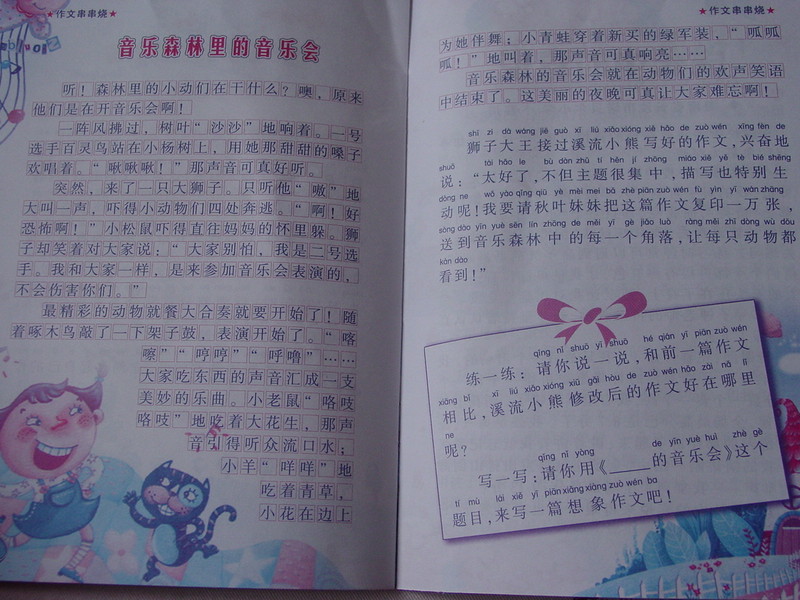 ★作文串串烧★
音乐森林里的音乐会
听！森林里的小动们在干什么？噢，原来
他们是在开音乐会啊！
一阵风拂过，树叶“沙沙”地响着。一号
选手百灵鸟站在小杨树上，用她那甜甜的嗓子
欢唱着。“啾啾啾！”那声音可真好听。
突然，来了一只大狮子。只听他“嗷”地
大叫一声，吓得小动物们四处奔逃。“啊！好
恐怖啊！”小松鼠吓得直往妈妈的怀里躲。狮
子却笑着对大家说：“大家别怕，我是二号选
手。我和大家一样，是来参加音乐会表演的，
不会伤害你们。”
最精彩的动物就餐大合奏就要开始了！随
着啄木鸟敲了一下架子鼓，表演开始了。“喀
嚓”“哼哼”“呼噜”……
大家吃东西的声音汇成一支
美妙的乐曲。小老鼠“咯吱
咯吱”地吃着大花生，那声
音引得听众流口水；
小羊“咩咩”地
吃着青草，
小花在边上
★作文串串烧★
为她伴舞；小青蛙穿着新买的绿军装，“呱呱
呱！”地叫着，那声音可真响亮……
音乐森林的音乐会就在动物们的欢声笑语
中结束了。这美丽的夜晚可真让大家难忘啊！
shī zi dà wáng jiē guò xī liú xiǎo xióng xiě hǎo de zuò wén xīng fèn de
狮子大王接过溪流小熊写好的作文，兴奋地
shuō tài hǎo le bù dàn zhǔ tí hěn jí zhōng miáo xiě yě tè bié shēng
说：“太好了，不但主题很集中，描写也特别生
dòng ne wǒ yào qǐng qiū yè mèi mei bǎ zhè piān zuò wén fù yìn yī wàn zhāng
动呢！我要请秋叶妹妹把这篇作文复印一万张，
sòng dào yīn yuè sēn lín zhōng de měi yī gè jiǎo luò ràng měi zhī dòng wù dōu
送到音乐森林中的每一个角落，让每只动物都
kàn dào
看到！”
qǐng nǐ shuō yī shuō hé qián yī piān zuò wén
练一练：请你说一说，和前一篇作文
xiāng bǐ xī liú xiǎo xióng xiū gǎi hòu de zuò wén hǎo zài nǎ lǐ
相比，溪流小熊修改后的作文好在哪里
ne
呢？
qǐng nǐ yòng de yīn yuè huì zhè gè
写一写：请你用《____的音乐会》这个
tí mù lái xiě yī piān xiǎng xiàng zuò wén ba
题目，来写一篇想象作文吧！